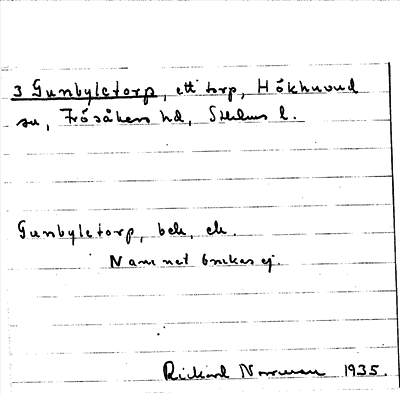 3 Gunbyletorp, ett torp, Hökhuvud
sn, Frösåkers hd, Sthlms l.
Gunbyletorp, beb, ek.
Namnet brukas ej.
Rickard Norrman 1935.